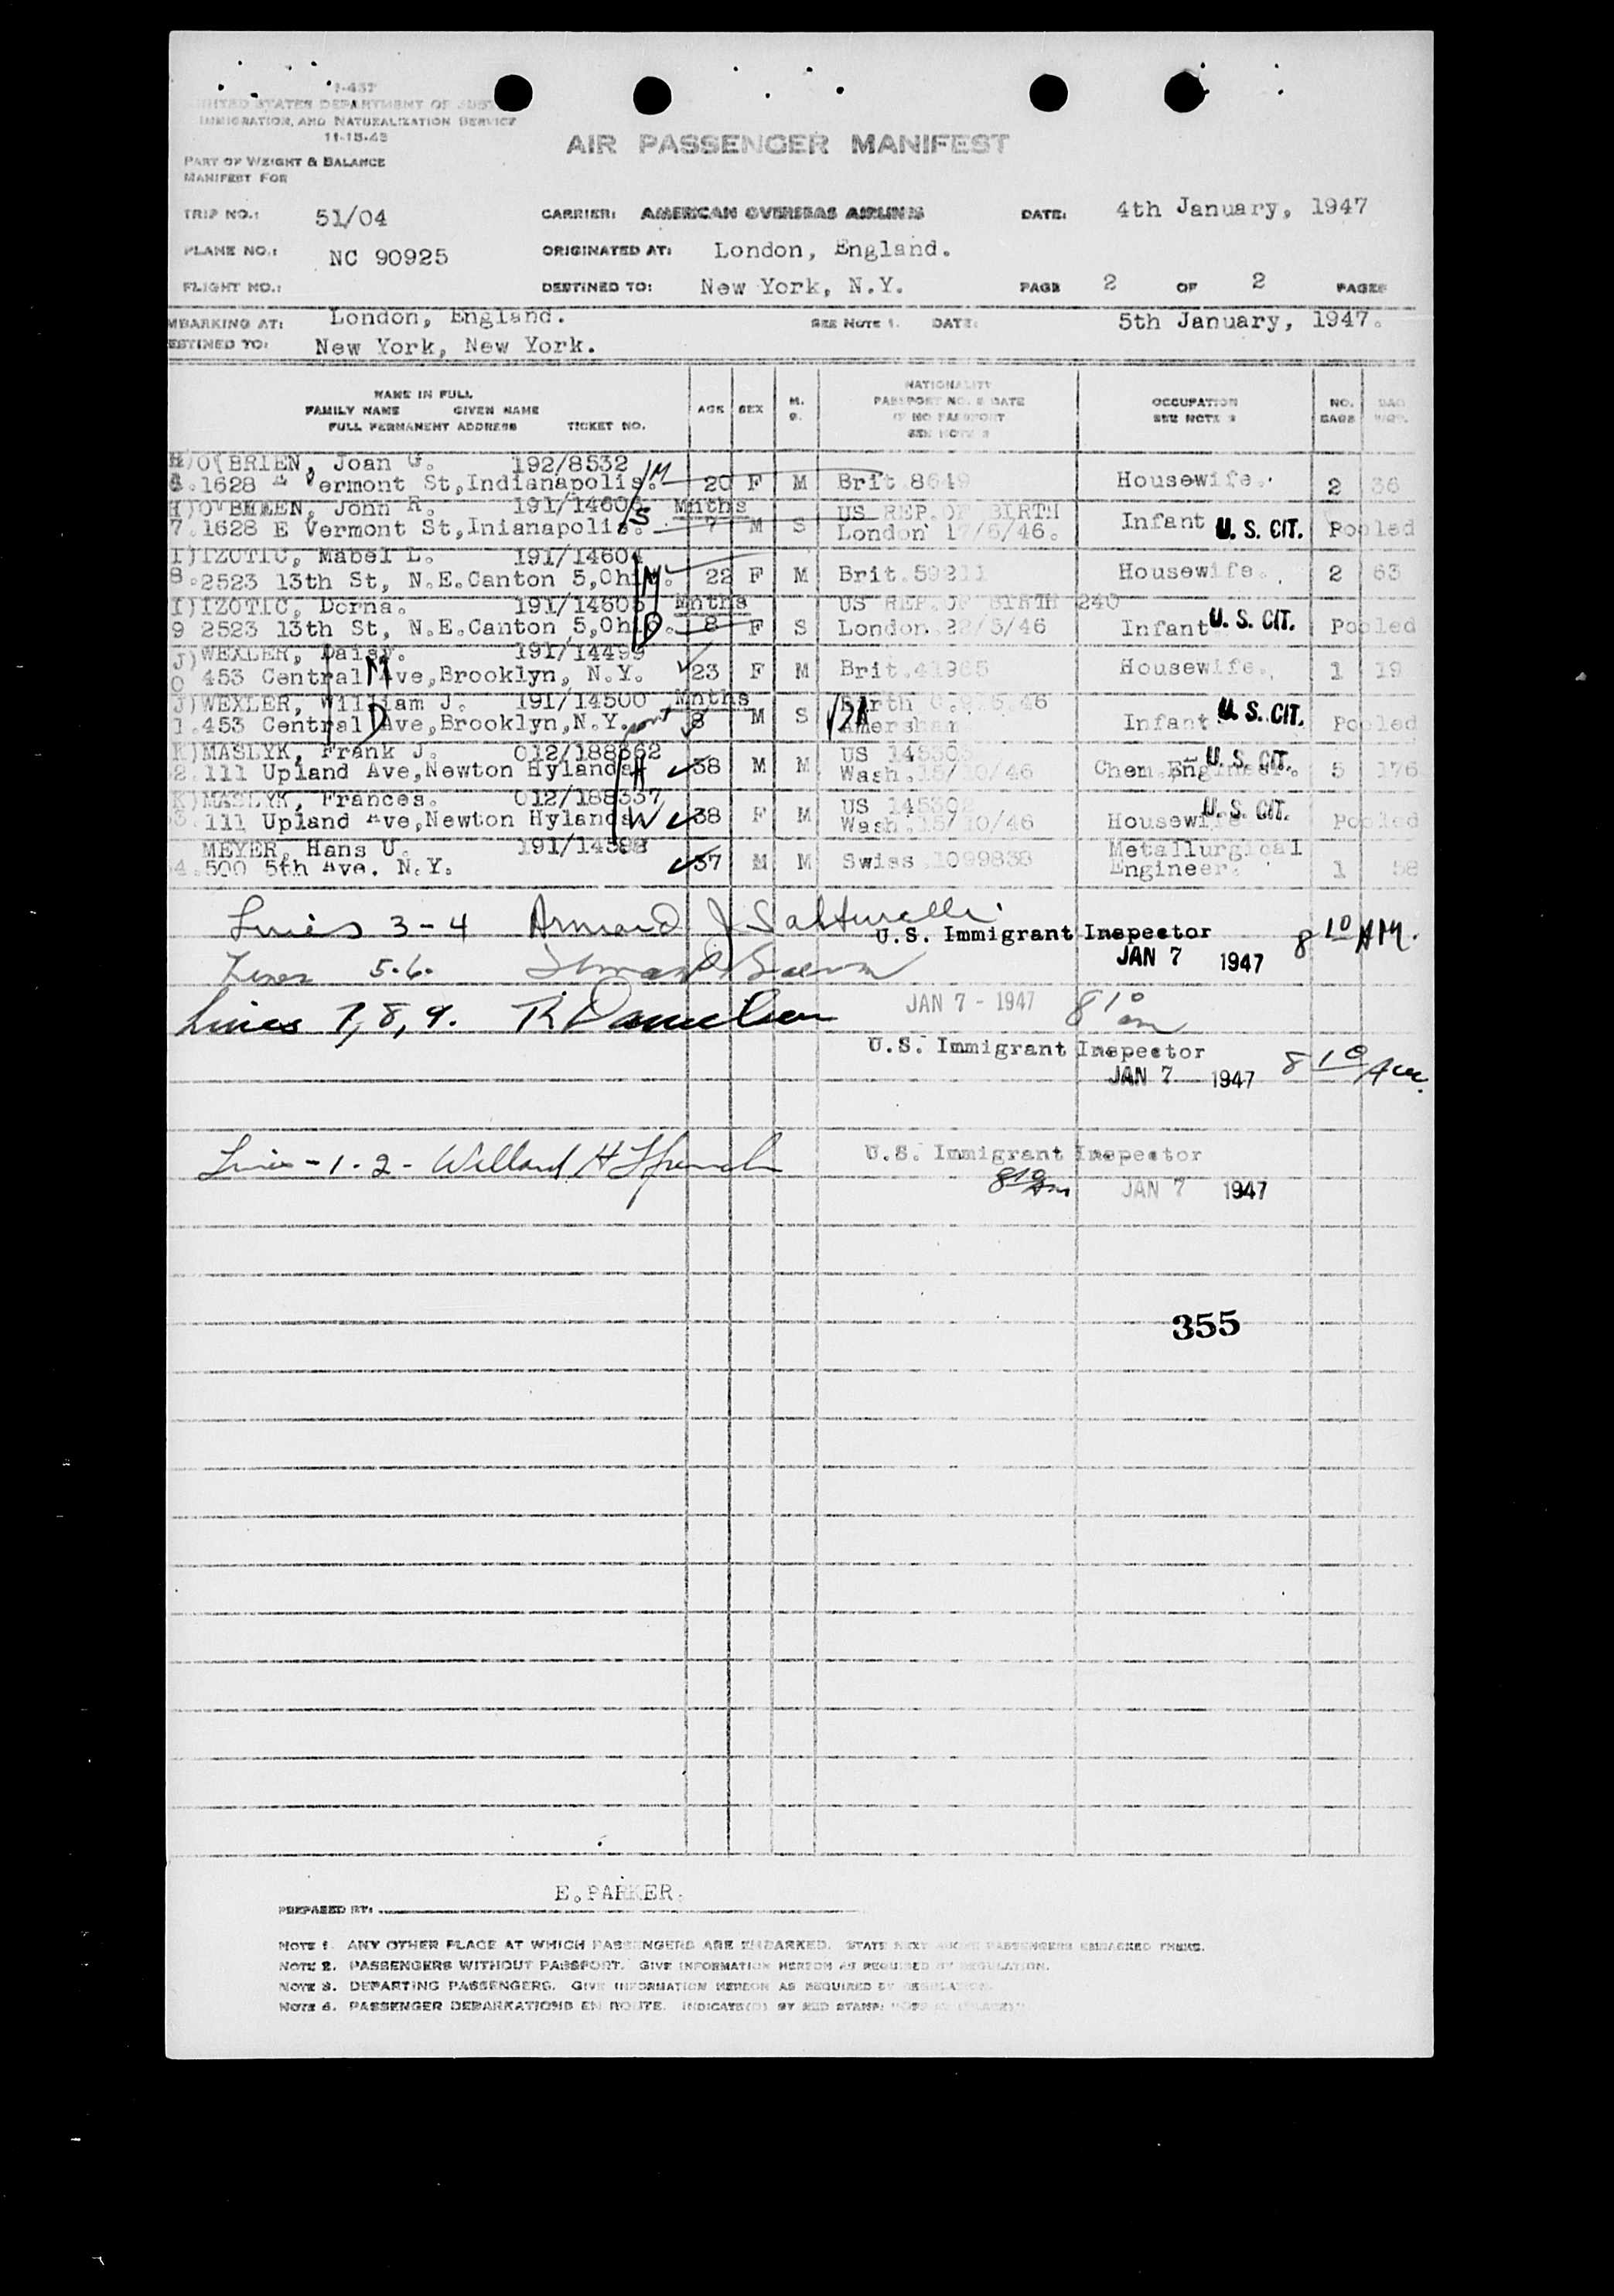 I-437
UNITED STATES DEPARTMENT OF JUST
IMMIGRATION, AND NATURALIZATION SERVICE
11-15-45
PART OF WEIGHT & BALANCE
MANIFEST FOR
AIR PASSENGER MANIFEST
TRIP NO.: 51/04 CARRIER: AMERICAN OVERSEAS AIRLINES DATE: 4th January, 1947
PLANE NO.: NC 90925 ORIGINATED AT: London, England.
FLIGHT NO.: DESTINED TO: New York, N.Y. PAGE 2 OF 2 PAGES
MBARKING AT: London, England. SEE NOTE 1. DATE: 5th January, 1947.
ESTINED TO: New York, New York.
NAME IN FULL
FAMILY NAME GIVEN NAME
FULL PERMANENT ADDRESS TICKET NO.
AGE SEX M. S.
NATIONALITY
PASSPORT NO. & DATE
IF NO PASSPORT
SEE NOTE 2
OCCUPATION
SEE NOTE 3
NO. BAGS
BAG WGT.
H)O'BRIEN, Joan G. 192/8532
1628 E Vermont St,Indianapolis. M 20 F M Brit 8649 Housewife. 2 36
H)O'BRIEN, John R. 191/14606 Mnths US REP.OF BIRTH
7.1628 E Vermont St,Inianapolis. S 7 M S London 17/6/46. Infant U. S. CIT. Pooled
I)IZOTIC, Mabel L. 191/14604
8.2523 13th St, N.E.Canton 5,Ohio. M 22 F M Brit.59211 Housewife. 2 63
I)IZOTIC, Dorna. 191/14605 Mnths US REP.OF BIRTH 240
9 2523 13th St, N.E.Canton 5,Ohio. D 8 F S London 22/5/46 Infant U. S. CIT. Pooled
J)WEXLER, Daisy. 191/14499
0 453 Central Ave,Brooklyn, N.Y. M 23 F M Brit.41985 Housewife. 1 19
J)WEXLER, William J. 191/14500 Mnths Birth
1.453 Central Ave,Brooklyn,N.Y. D 8 M S Amersham Infant U. S. CIT. Pooled
K)MASLYK, Frank J. 012/188362 US U. S. CIT.
2.111 Upland Ave,Newton Hylands H 38 M M Wash.15/10/46 Chem.Engineer. 5 176
K)MASLYK, Frances. 012/188337 US U. S. CIT.
3.111 Upland Ave,Newton Hylands W 38 F M Wash.15/10/46 Housewife Pooled
MEYER, Hans U. 191/14398 Metallurgical
4.500 5th Ave. N.Y. 37 M M Swiss 1099838 Engineer. 1 58
Lines 3-4 Armand J
U.S. Immigrant Inspector 8 10 AM.
JAN 7 1947
Lines 5.6.
JAN 7 - 1947 8 10 am
Lines 7, 8, 9.
U.S. Immigrant Inspector
JAN 7 1947 8 10 AM
Lines - 1-2- Willard H
U.S. Immigrant Inspector
8 10 Am JAN 7 1947
355
E.PARKER.
PREPARED BY:
NOTE 1. ANY OTHER PLACE AT WHICH PASSENGERS ARE EMBARKED. STATE NEXT ABOVE PASSENGERS EMBARKED THERE.
NOTE 2. PASSENGERS WITHOUT PASSPORT. GIVE INFORMATION HEREON AS REQUIRED BY REGULATION.
NOTE 3. DEPARTING PASSENGERS. GIVE INFORMATION HEREON AS REQUIRED BY REGULATION.
NOTE 4. PASSENGER DEBARKATIONS EN ROUTE. INDICATE(D) BY RED STAMP: